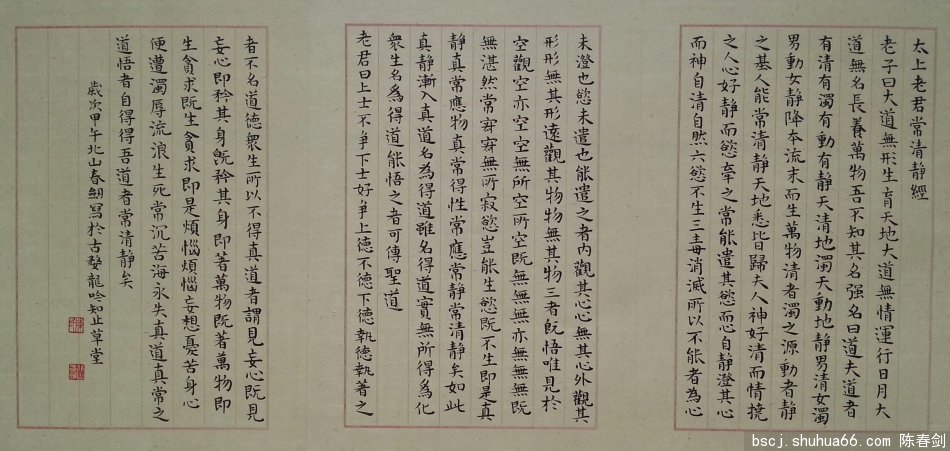 太上老君常清靜經
老子曰大道無形生育天地大道無情運行日月大
道無名長養萬物吾不知其名强名曰道夫道者
有清有濁有動有静天清地濁天動地静男清女濁
男動女静降本流末而生萬物清者濁之源動者静
之基人能常清静天地悉皆歸夫人神好清而情撓
之人心好静而慾牽之常能遣其慾而心自静澄其心
而神自清自然六慾不生三毒消滅所以不能者為心
未澄也慾未遣也能遣之者内觀其心心無其心外觀其
形形無其形遠觀其物物無其物三者既悟唯見於
空觀空亦空空無所空所空既無無無亦無無無既
無湛然常寂寂無所寂慾豈能生慾既不生即是真
静真常應物真常得性常應常静常清静矣如此
真静漸入真道名為得道雖名得道實無所得為化
衆生名為得道能悟之者可傳聖道
老君曰上士不争下士好争上德不德下德執德執著之
者不名道德衆生所以不得真道者謂見妄心既見
妄心即矜其身既矜其身即著萬物既著萬物即
生貪求既生貪求即是煩惱煩惱妄想憂苦身心
便遭濁辱流浪生死常沉苦海永失真道真常之
道悟者自得得吾道者常清静矣
歲次甲午北山春劒寫於古婺龍吟知止草堂
bscj.shuhua66.com 陈春剑